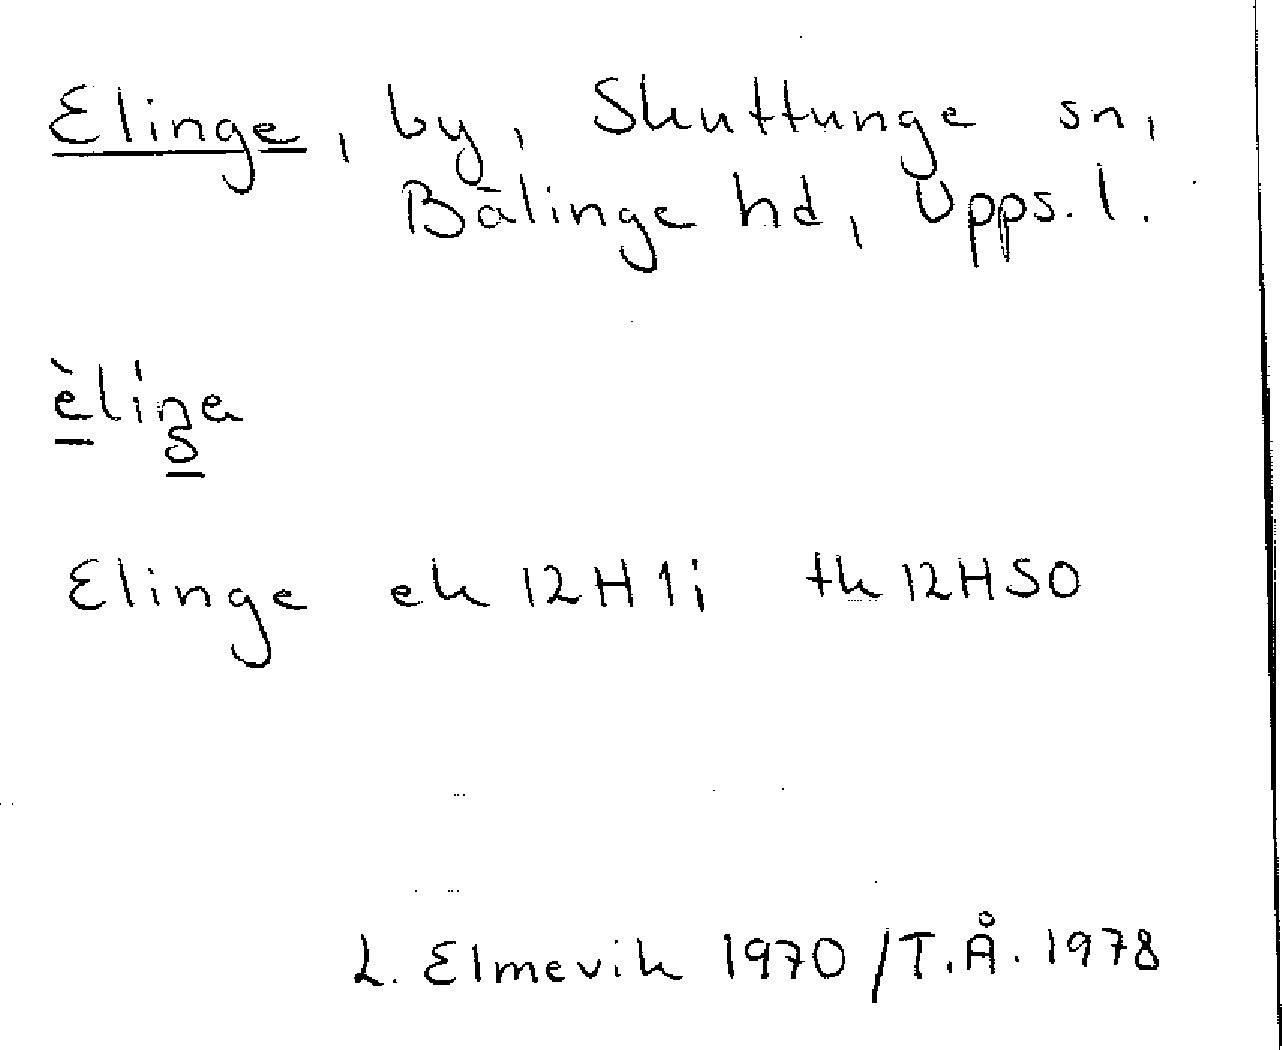 Elinge, by, Skuttunge sn,
Bälinge hd, Upps. l.
Elinge ek 12H1i tk 12HSO
L. Elmevik 1970 / T.Å. 1978